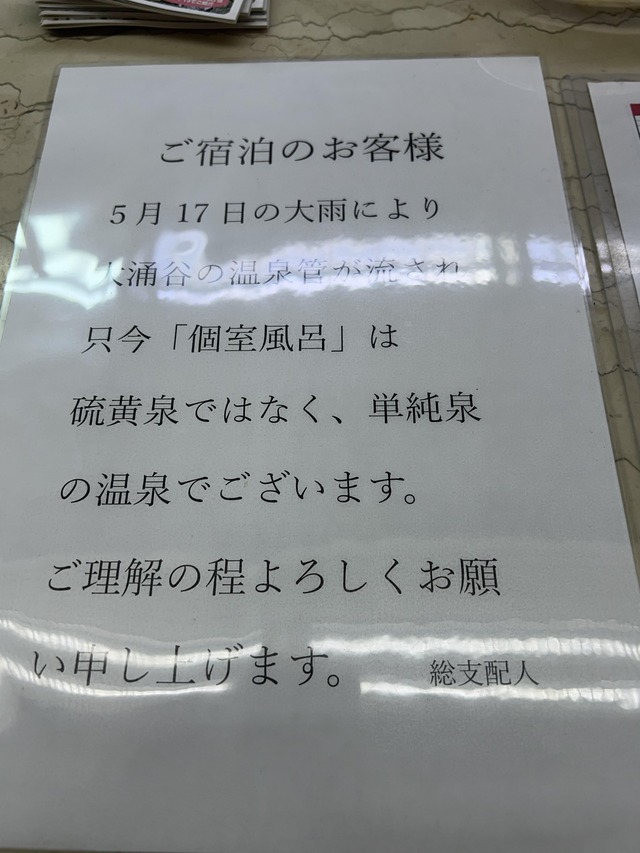 ご宿泊のお客様
5月17日の大雨により
大涌谷の温泉管が流され
只今「個室風呂」は
硫黄泉ではなく、単純泉
の温泉でございます。
ご理解の程よろしくお願
い申し上げます。 総支配人